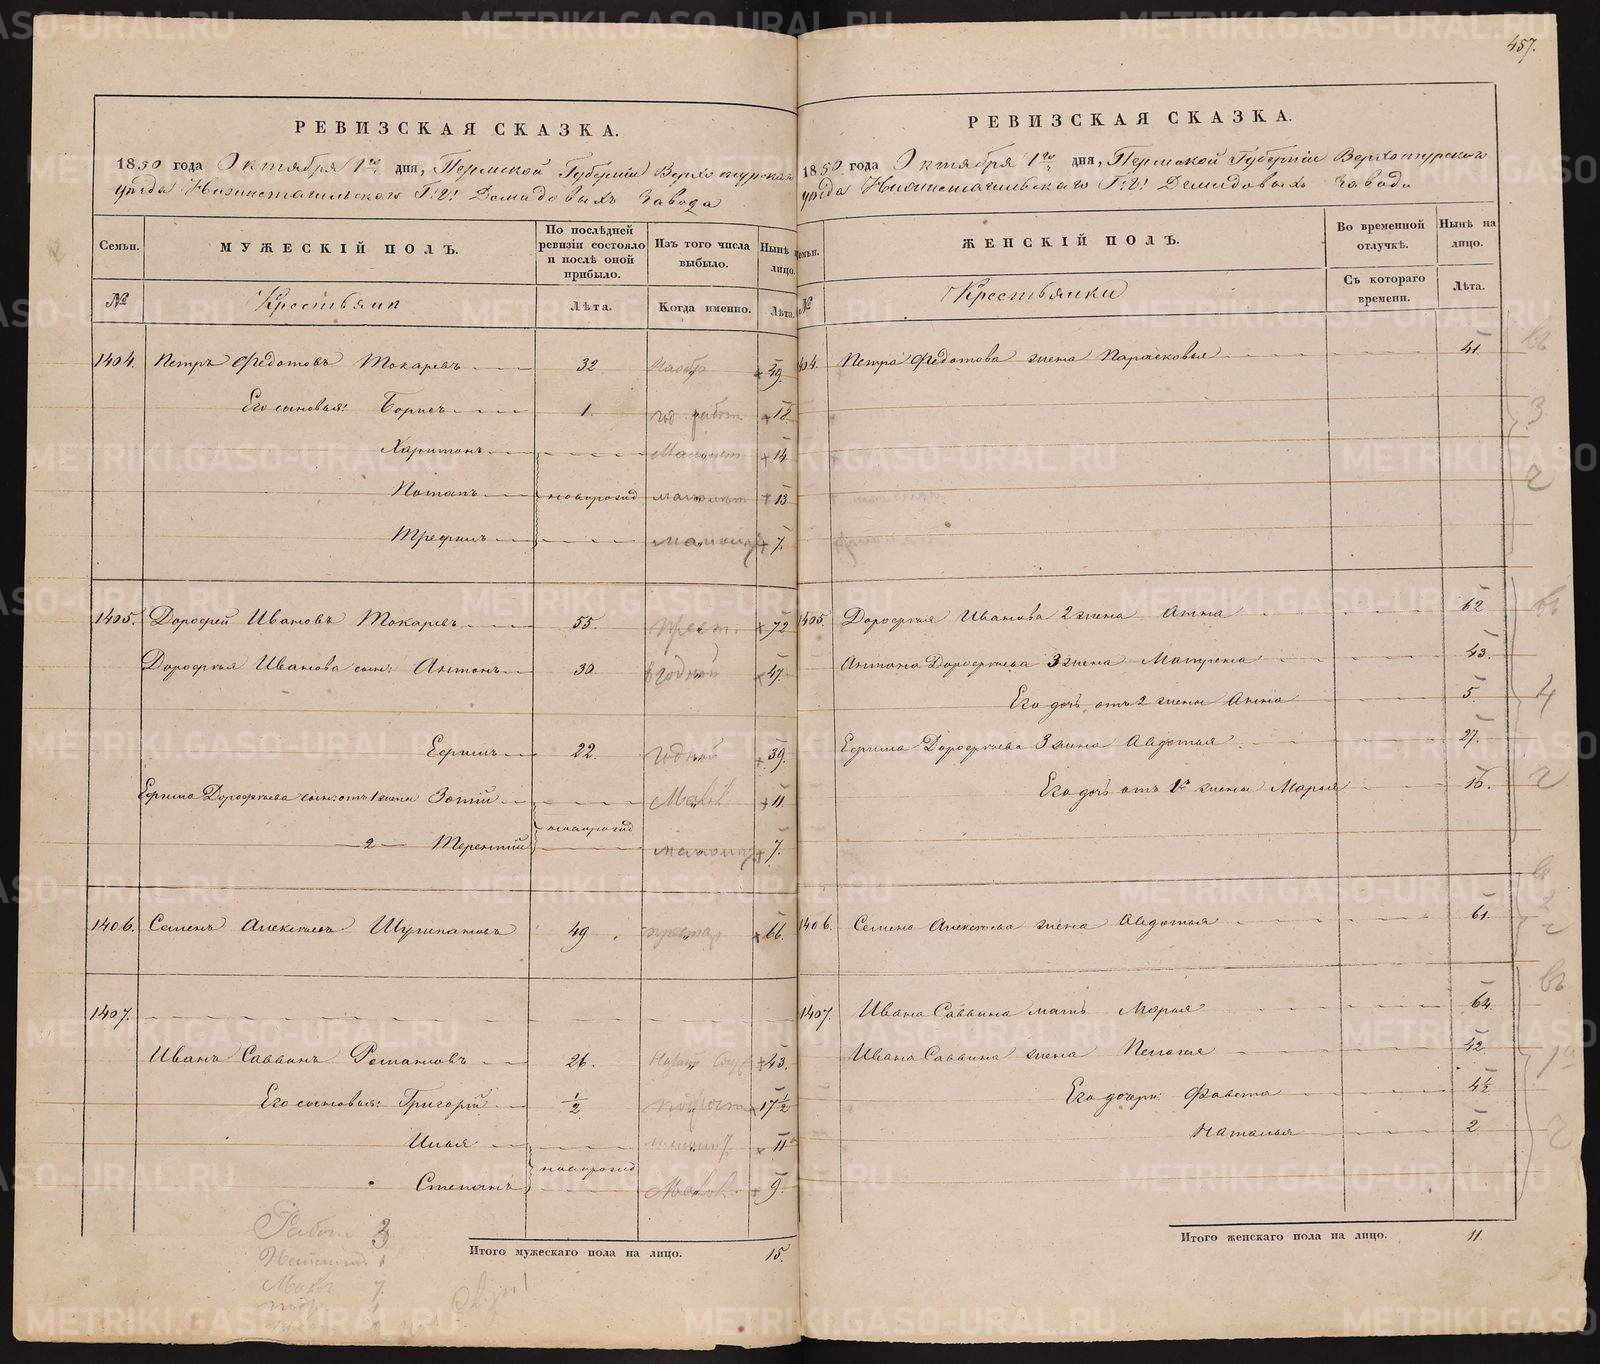 РЕВИЗСКАЯ СКАЗКА.
1850 года Октября 1го дня, Пермской Губерніи Верхотурскаго
уѣзда Нижнетагильскаго Г.г. Демидовыхъ завода
Семьи. МУЖЕСКІЙ ПОЛЪ. По послѣдней ревизіи состояло и послѣ оной прибыло. Изъ того числа выбыло. Нынѣ на лицо.
№ Крестьянъ Лѣта. Когда именно. Лѣта.
1404. Петръ Федотовъ Токаревъ 32 49.
Его сыновья: Борисъ 1. год. работ 18
Харитонъ Малолет 14
Потапъ новорожд малолет 13
Трефилъ 7.
1405. Дорофей Ивановъ Токаревъ 55. 72
Дорофѣя Иванова сынъ Антонъ 30 годной 47.
Ефимъ 22. годной 39.
Ефима Дорофѣева сынъ: отъ 1 жены Зотій 11
2 Терентій новорожд 7.
1406. Семенъ Алексѣевъ Шушпановъ 49. 66.
1407.
Иванъ Саввинъ Романовъ 26. 43.
Его сыновья: Григорій ½ 17½
Илья 11
Степанъ новорожд 9.
Итого мужескаго пола на лицо. 15.
Работ 3
7.
457.
РЕВИЗСКАЯ СКАЗКА.
1850 года Октября 1го дня, Пермской Губерніи Верхотурскаго
уѣзда Нижнетагильскаго Г.г. Демидовыхъ завода
Семьи. ЖЕНСКІЙ ПОЛЪ. Во временной отлучкѣ. Нынѣ на лицо.
№ Крестьянки Съ котораго времени. Лѣта.
404. Петра Федотова жена Парасковья 41.
1405. Дорофѣя Иванова 2 жена Анна 62
Антона Дорофѣева 3 жена Матрена 43.
Его дочь отъ 2 жены Анна 5
Ефима Дорофѣева 3 жена Авдотья 27.
Его дочь отъ 1й жены Марья 16.
1406. Семена Алексѣева жена Авдотья 61.
1407. Ивана Саввина мать Марья 64.
Ивана Саввина жена Пелагея 42
Его дочери: Фавста 4½
Наталья 2
Итого женскаго пола на лицо. 11.
METRIKI.GASO-URAL.RU